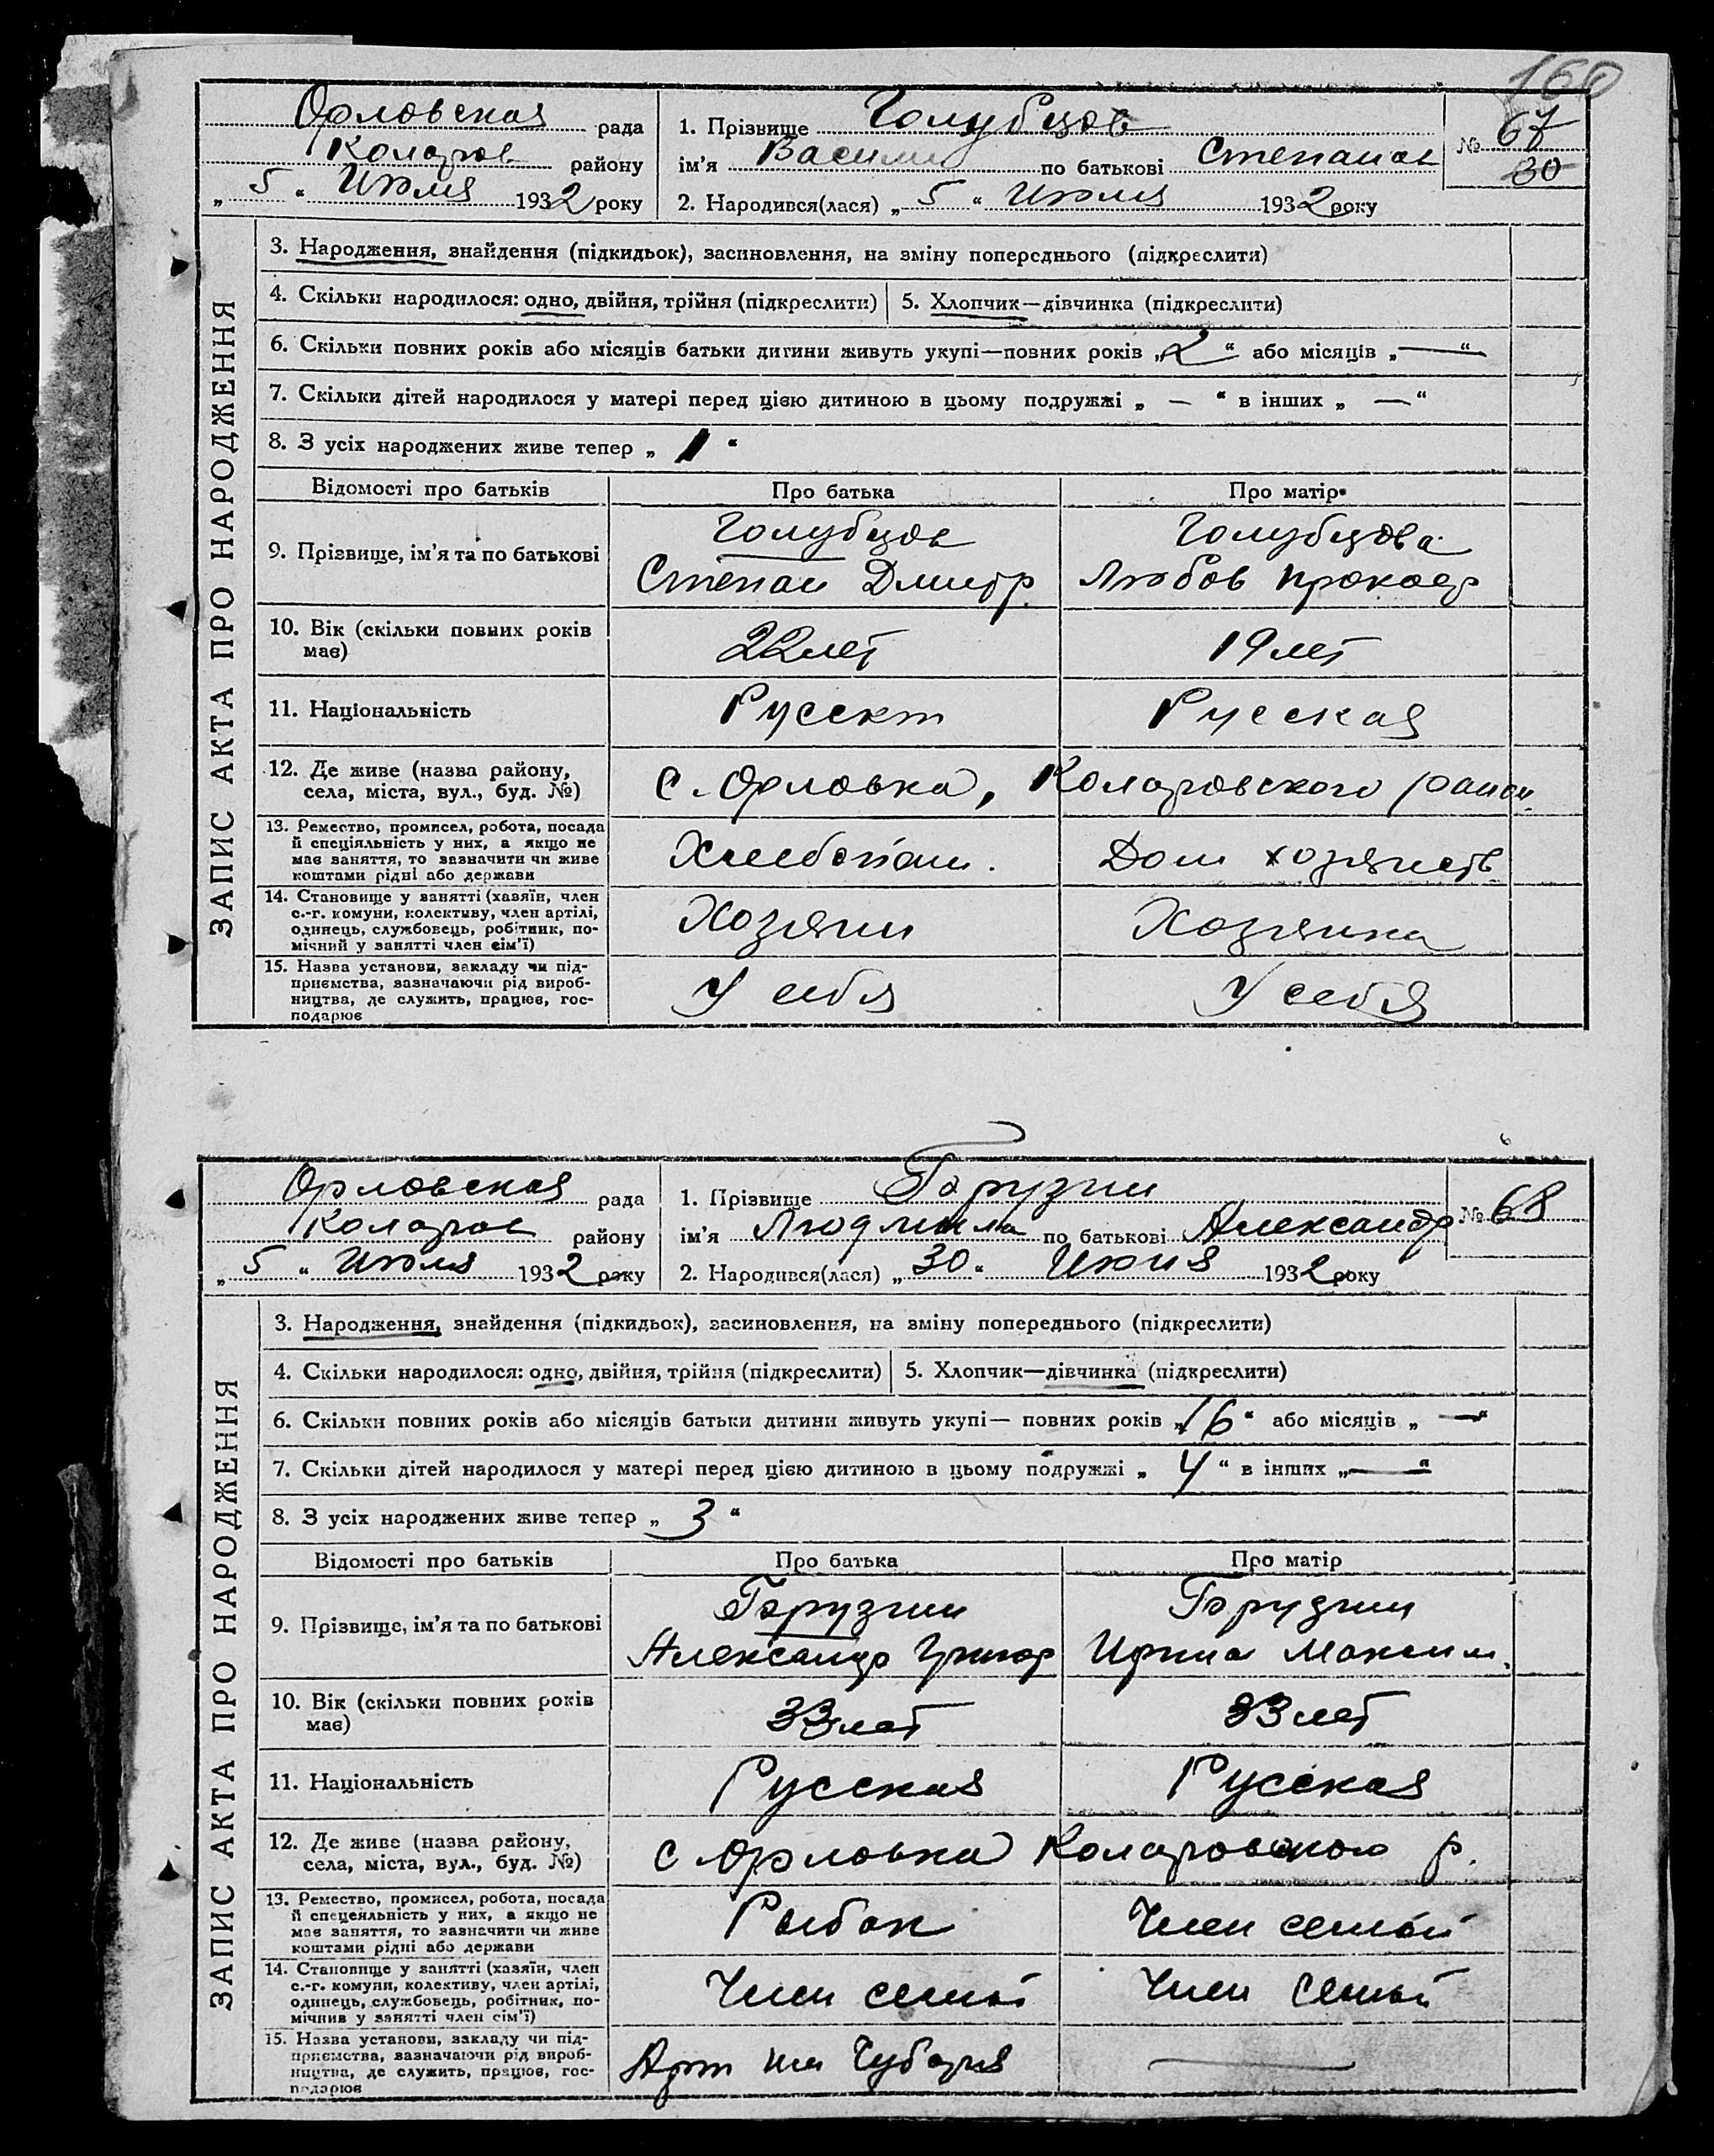 160
Орловская рада
Коларов району
„ 5 “ Июля 1932 року
1. Прізвище Голубцов
ім'я Василий по батькові Степанов
2. Народився(лася) „ 5 “ Июля 1932 року
№ 67
30
ЗАПИС АКТА ПРО НАРОДЖЕННЯ
3. Народження, знайдення (підкидьок), засиновлення, на зміну попереднього (підкреслити)
4. Скільки народилося: одно, двійня, трійня (підкреслити) 5. Хлопчик—дівчинка (підкреслити)
6. Скільки повних років або місяців батьки дитини живуть укупі—повних років „ 2 “ або місяців „ — “
7. Скільки дітей народилося у матері перед цією дитиною в цьому подружжі „ — “ в інших „ — “
8. З усіх народжених живе тепер „ 1 “
Відомості про батьків Про батька Про матір
9. Прізвище, ім'я та по батькові
Голубцов
Степан Дмитр.
Голубцова
Любов Прокоф
10. Вік (скільки повних років
має)
22 лет 19 лет
11. Національність Русскт Русская
12. Де живе (назва району,
села, міста, вул., буд. №)
с. Орловка, Коларовского район.
13. Ремество, промисел, робота, посада
й спеціяльність у них, а якщо не
має заняття, то зазначити чи живе
коштами рідні або держави
Хлебопаш. Дом хозяйств.
14. Становище у занятті (хазяїн, член
с.-г. комуни, колективу, член артілі,
одинець, службовець, робітник, по-
мічний у занятті член сім'ї)
Хозяин Хозяика
15. Назва установи, закладу чи під-
приємства, зазначаючи рід вироб-
ництва, де служить, працює, гос-
подарює
У себя У себя
Орловская рада
Коларов району
„ 5 “ Июля 1932 року
1. Прізвище Гарузин
ім'я Людмила по батькові Александр
2. Народився(лася) „ 30 “ Июня 1932 року
№ 68
ЗАПИС АКТА ПРО НАРОДЖЕННЯ
3. Народження, знайдення (підкидьок), засиновлення, на зміну попереднього (підкреслити)
4. Скільки народилося: одно, двійня, трійня (підкреслити) 5. Хлопчик—дівчинка (підкреслити)
6. Скільки повних років або місяців батьки дитини живуть укупі— повних років „ 16 “ або місяців „ — “
7. Скільки дітей народилося у матері перед цією дитиною в цьому подружжі „ 4 “ в інших „ — “
8. З усіх народжених живе тепер „ 3 “
Відомості про батьків Про батька Про матір
9. Прізвище, ім'я та по батькові
Гарузин
Александр Григор
Гарузин
Ирина Максим.
10. Вік (скільки повних років
має)
33 лет 33 лет
11. Національність Русская Русская
12. Де живе (назва району,
села, міста, вул., буд. №)
с Орловка Коларовского р.
13. Ремество, промисел, робота, посада
й спецеяльність у них, а якщо не
має заняття, то зазначити чи живе
коштами рідні або держави
Рыбак Член семьи
14. Становище у занятті (хазяїн, член
с.-г. комуни, колективу, член артілі,
одинець, службовець, робітник, по-
мічнив у занятті член сім'ї)
Член семьи Член семьи
15. Назва установи, закладу чи під-
приємства, зазначаючи рід вироб-
ництва, де служить, працює, гос-
подарює
Арт им Чубаря —